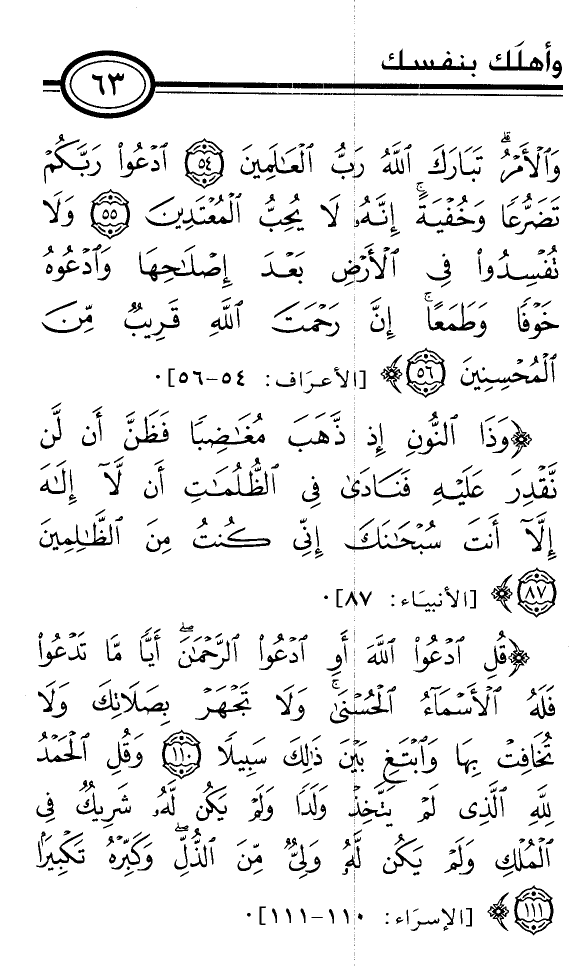 وأهلَك بنفسك
٦٣
وَٱلْأَمْرُ ۗ تَبَارَكَ ٱللَّهُ رَبُّ ٱلْعَـٰلَمِينَ ٥٤ ٱدْعُوا۟ رَبَّكُمْ
تَضَرُّعًا وَخُفْيَةً ۚ إِنَّهُۥ لَا يُحِبُّ ٱلْمُعْتَدِينَ ٥٥ وَلَا
تُفْسِدُوا۟ فِى ٱلْأَرْضِ بَعْدَ إِصْلَـٰحِهَا وَٱدْعُوهُ
خَوْفًا وَطَمَعًا ۚ إِنَّ رَحْمَتَ ٱللَّهِ قَرِيبٌ مِّنَ
ٱلْمُحْسِنِينَ ٥٦﴾ [الأعرَاف: ٥٤-٥٦].
﴿وَذَا ٱلنُّونِ إِذ ذَّهَبَ مُغَـٰضِبًا فَظَنَّ أَن لَّن
نَّقْدِرَ عَلَيْهِ فَنَادَىٰ فِى ٱلظُّلُمَـٰتِ أَن لَّآ إِلَـٰهَ
إِلَّآ أَنتَ سُبْحَـٰنَكَ إِنِّى كُنتُ مِنَ ٱلظَّـٰلِمِينَ
٨٧﴾ [الأنبيَاء: ٨٧].
﴿قُلِ ٱدْعُوا۟ ٱللَّهَ أَوِ ٱدْعُوا۟ ٱلرَّحْمَـٰنَ ۖ أَيًّا مَّا تَدْعُوا۟
فَلَهُ ٱلْأَسْمَآءُ ٱلْحُسْنَىٰ ۚ وَلَا تَجْهَرْ بِصَلَاتِكَ وَلَا
تُخَافِتْ بِهَا وَٱبْتَغِ بَيْنَ ذَٰلِكَ سَبِيلًا ١١٠ وَقُلِ ٱلْحَمْدُ
لِلَّهِ ٱلَّذِى لَمْ يَتَّخِذْ وَلَدًا وَلَمْ يَكُن لَّهُۥ شَرِيكٌ فِى
ٱلْمُلْكِ وَلَمْ يَكُن لَّهُۥ وَلِىٌّ مِّنَ ٱلذُّلِّ ۖ وَكَبِّرْهُ تَكْبِيرًۢا
١١١﴾ [الإسرَاء: ١١٠-١١١].